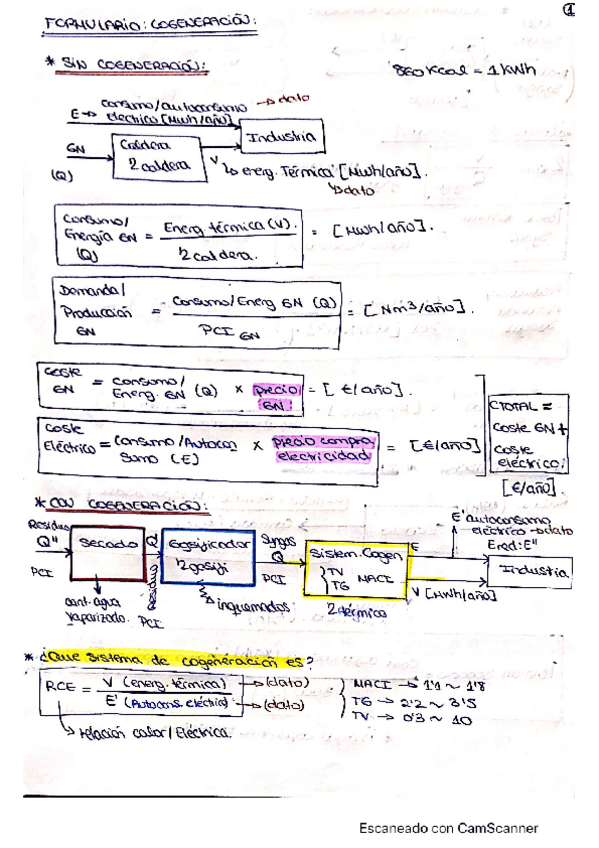 1
FORMULARIO: COGENERACIÓN:
* SIN COGENERACIÓN:
860 Kcal = 1 KWh
consumo/autoconsumo → dato
E → eléctrico [Mwh/año]
Industria
GN
(Q)
Caldera
η caldera
V
↳ energ. Térmica [Mwh/año].
↳ dato
Consumo/
Energía GN = Energ. térmica (V). = [Mwh/año].
(Q)
η caldera.
Demanda/
Producción = Consumo/Energ GN (Q) = [Nm3/año].
GN
PCI GN
Coste
GN = Consumo/ Energ. GN (Q) × precio GN. = [€/año].
Coste
Eléctrico = Consumo/Autocon sumo (E) × precio compra electricidad = [€/año]
CTOTAL =
Coste GN +
Coste
eléctrico;
[€/año].
* CON COGENERACIÓN:
Residuo
Q''
PCI
Secado
cant. agua
vaporizado.
Q'
Residuo
PCI
Gasificador
η gasifi
inquemados.
Syngas
Q
PCI
Sistem. Cogen
TV
TG
MACI
η térmico
E
E' autoconsumo
eléctrico → dato
Ered: E''
Industria
V [MWh/año]
* ¿Que sistema de cogeneración es?
RCE = V (energ. térmica) → (dato)
E' (Autocons. eléctrico) → (dato)
MACI → 1'1 ~ 1'8
TG → 2'2 ~ 3'5
TV → 0'3 ~ 10
→ relación calor/Eléctrica.
Escaneado con CamScanner